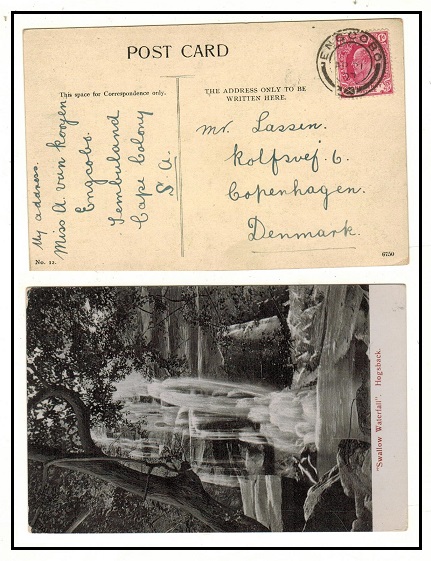 POST CARD
This space for Correspondence only.
THE ADDRESS ONLY TO BE
WRITTEN HERE.
ENGCOBO
My address.
Miss A. van
Engcobo.
Tembuland
Cape Colony
S. A.
Mr. Lassen.
Kolfsvej. 6.
Copenhagen.
Denmark.
No. 12.
6750
"Swallow Waterfall", Hogsback.